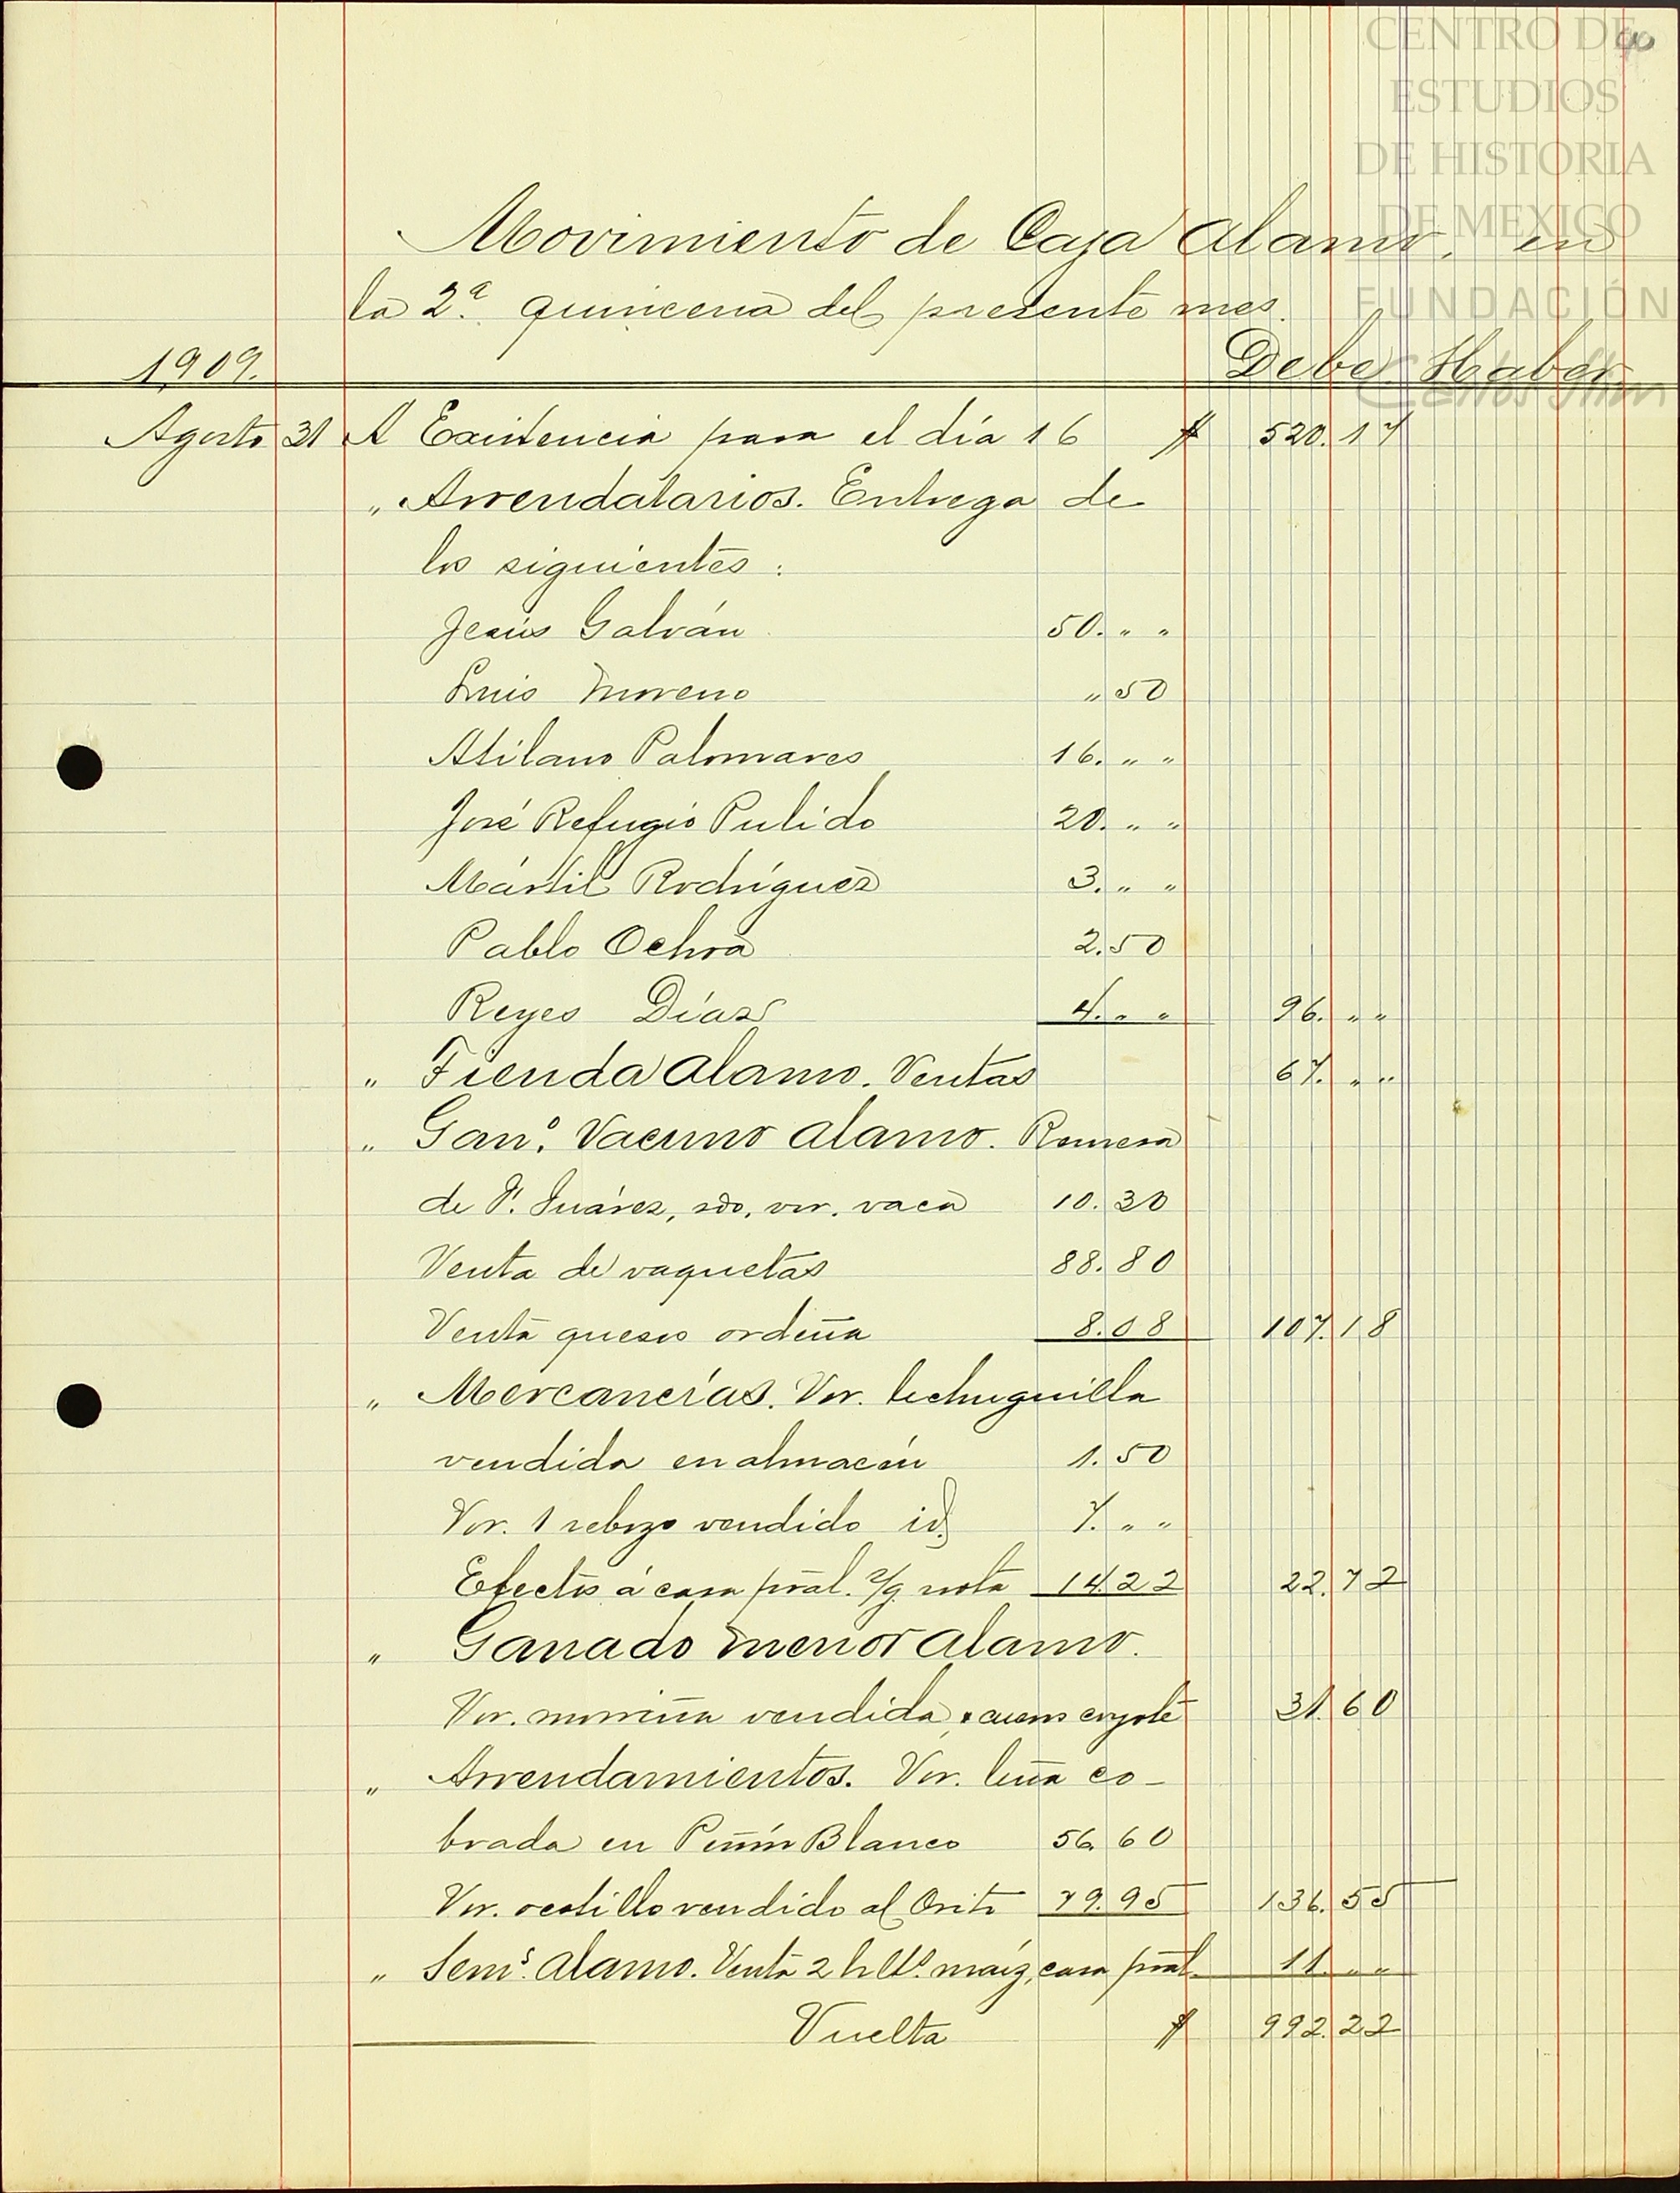 CENTRO DE
ESTUDIOS
DE HISTORIA
DE MEXICO
FUNDACIÓN
Carlos Slim
Movimiento de Caja Alamo, en
la 2ª quincena del presente mes.
1909. Debe Haber
Agosto 31 A Existencia para el día 16 $ 520.17
„ Arrendatarios. Entrega de
los siguientes:
Jesús Galván 50. „ „
Luis Moreno „ 50
Atilano Palomares 16. „ „
José Refugio Pulido 20. „ „
Mártil Rodríguez 3. „ „
Pablo Ochoa 2.50
Reyes Díaz 4. „ „ 96. „ „
„ Tienda Alamo. Ventas 67. „ „
„ Gan.º Vacuno Alamo. Remesa
de P. Suárez, sdo. vor. vaca 10.30
Venta de vaquetas 88.80
Venta quesos ordeña 8.08 107.18
„ Mercancías. Vor. lechuguilla
vendida en almacén 1.50
Vor. 1 rebozo vendido id. 7. „ „
Efectos á casa pral. s/g. nota 14.22 22.72
„ Ganado menor Alamo.
Vor. morriña vendida, cueros coyote 31.60
„ Arrendamientos. Vor. leña co-
brada en Peñón Blanco 56.60
Vor. ocotillo vendido al Orito 79.95 136.55
„ Sem.s Alamo. Venta 2 hlts. maíz, casa pral. 11. „ „
Vuelta $ 992.22